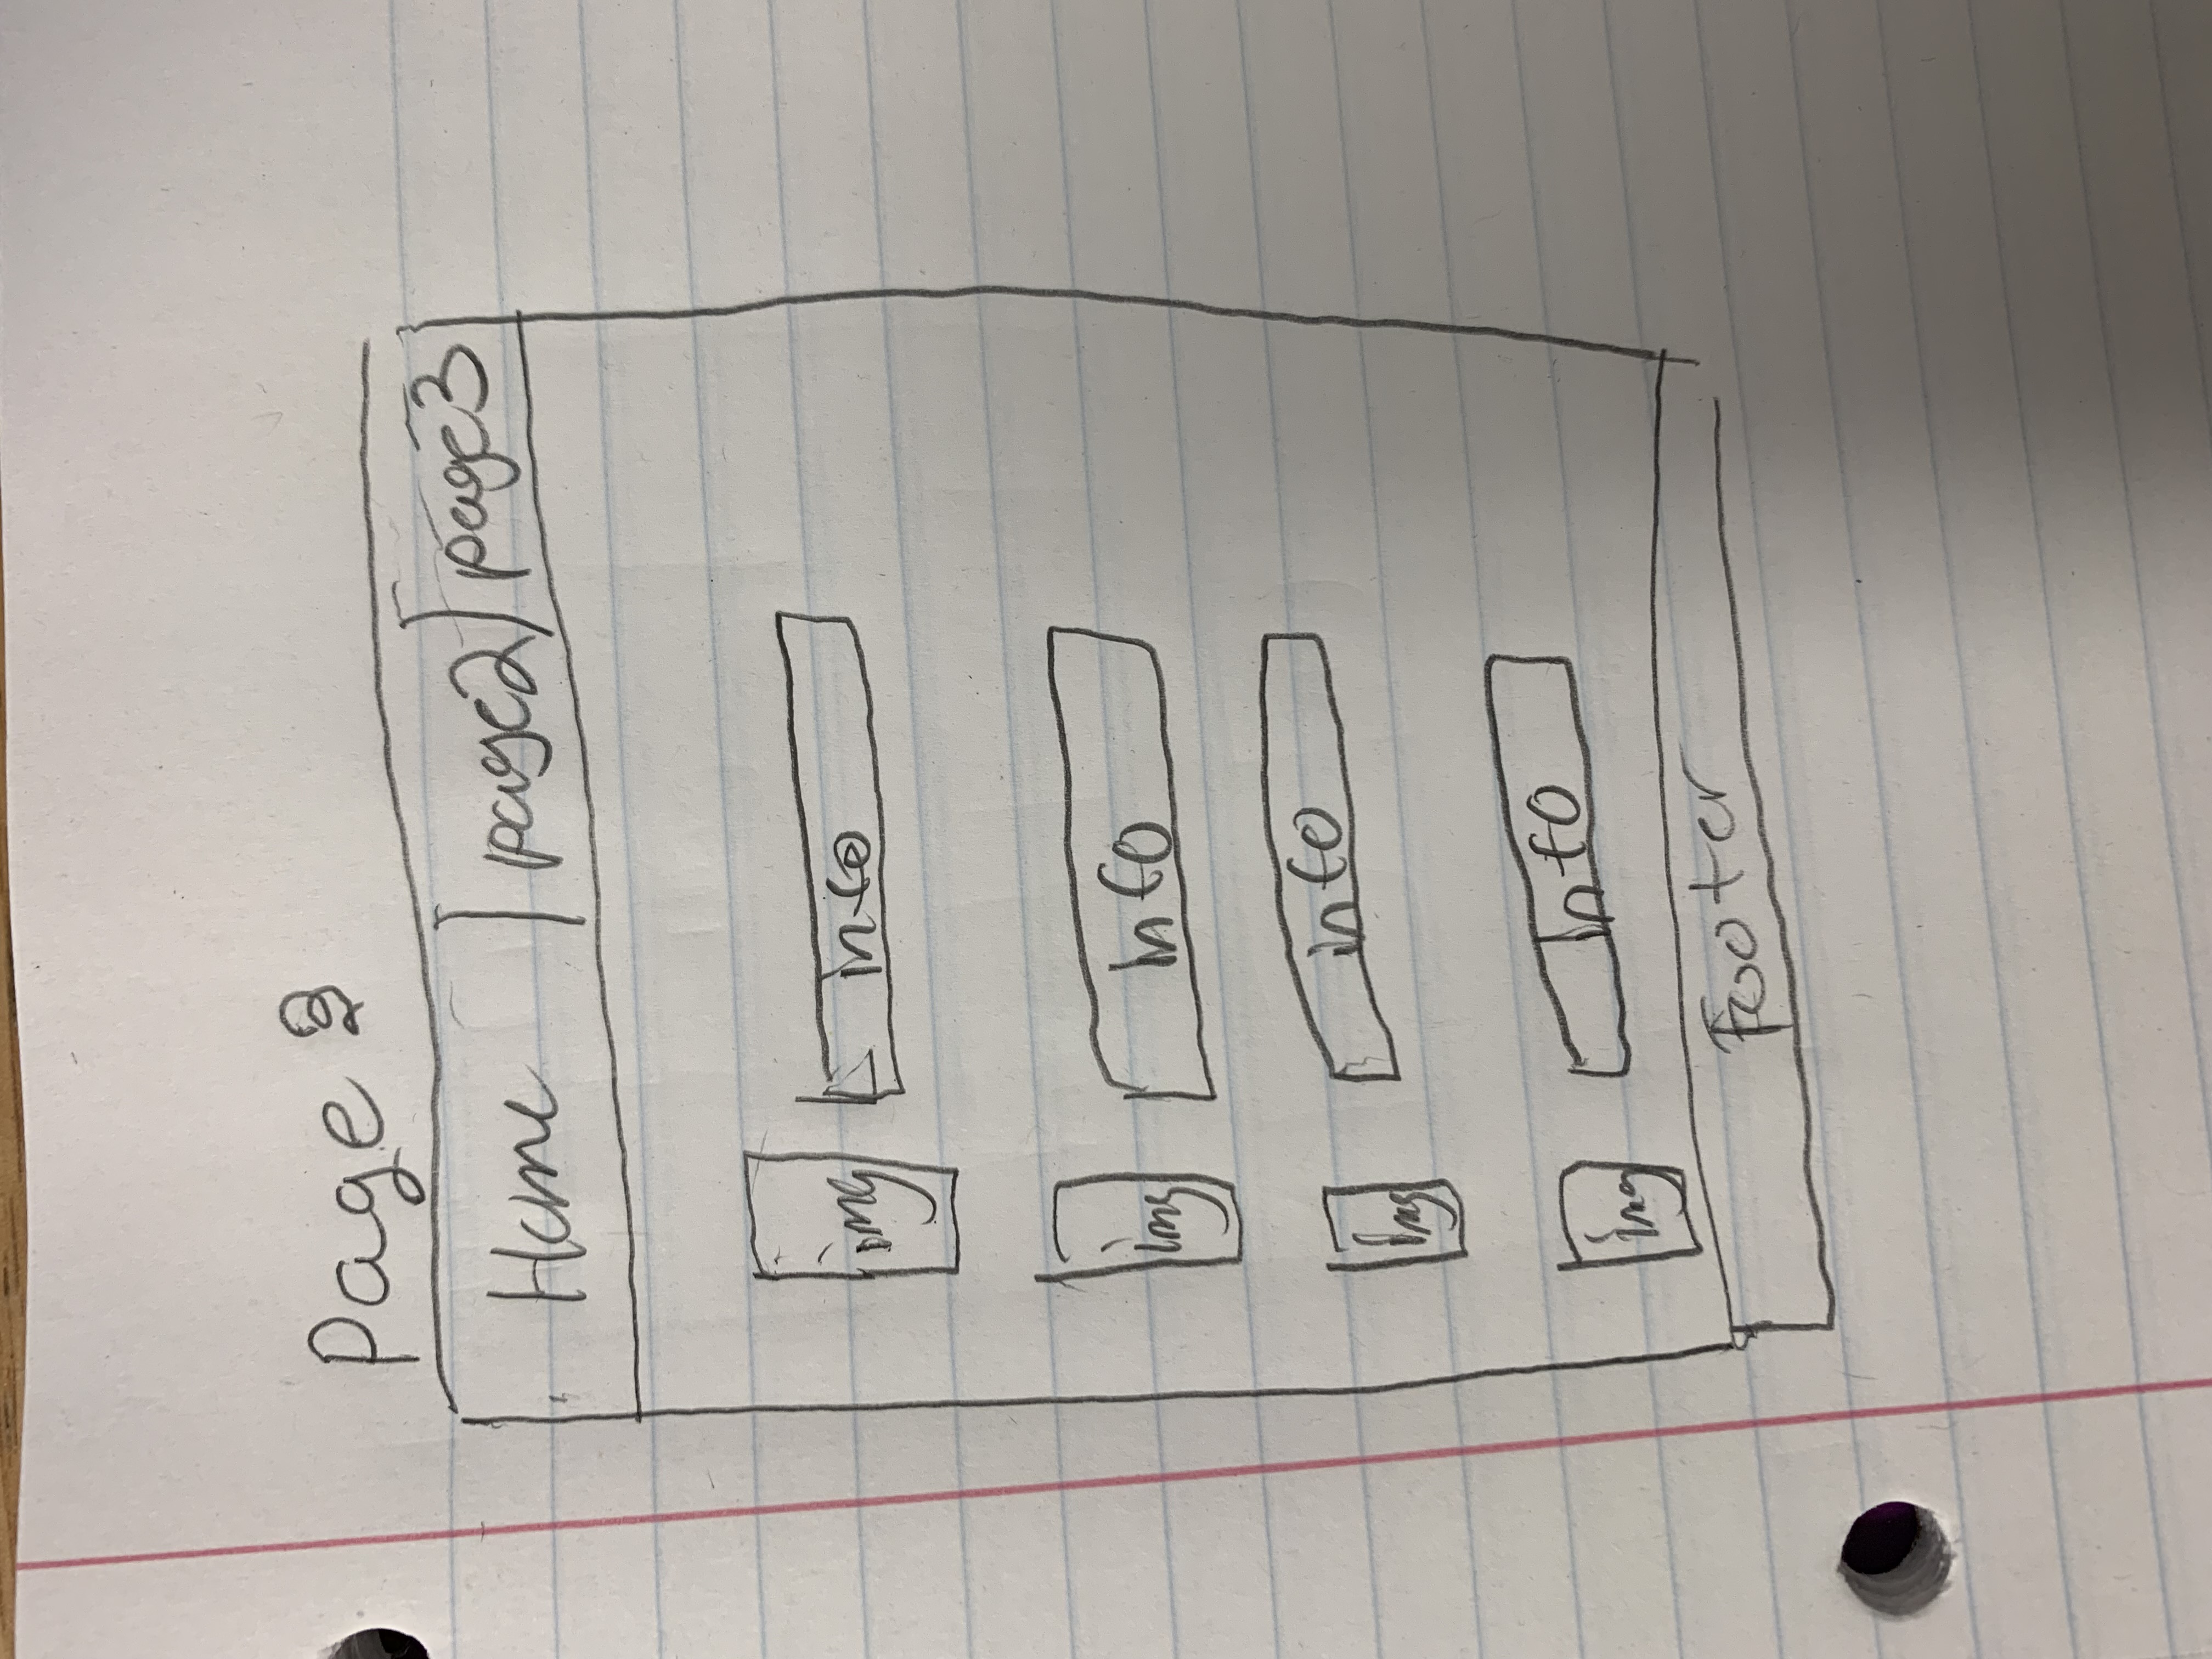 Page 3
Home page2 page3
img info
img info
img info
img info
Footer